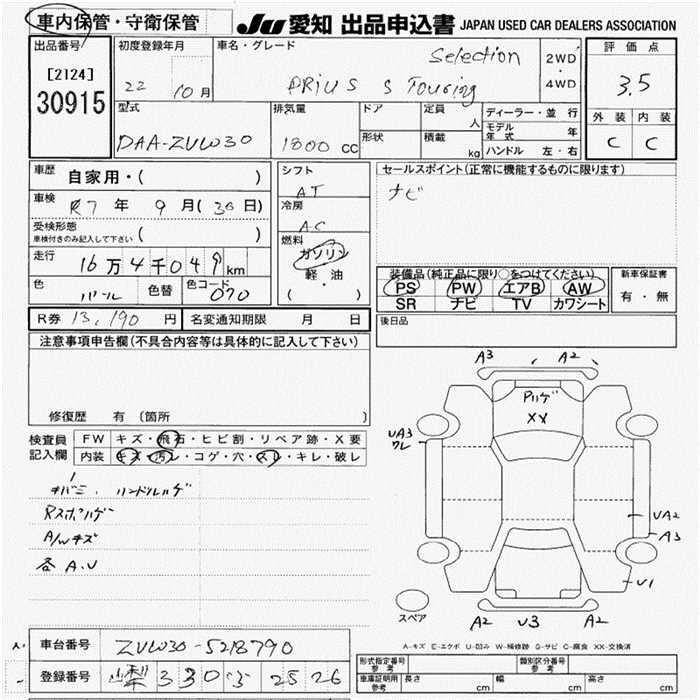 車内保管・守衛保管
JU 愛知 出品申込書 JAPAN USED CAR DEALERS ASSOCIATION
出品番号
[2124]
30915
初度登録年月
22 10月
車名・グレード
Selection
PRiUS S Touring
2WD
・
4WD
評価点
3.5
外装 内装
C C
型式
DAA-ZVW30
排気量
1800 CC
ドア
形状
定員
人
積載
kg
ディーラー・並行
モデル年式 年
ハンドル 左・右
車歴 自家用・( )
車検 R7年 9月(30日)
受検形態
車検付きのみ記入して下さい ( )
走行 16万4千049km
色 パール 色替 色コード 070
シフト
AT
冷房
AC
燃料
ガソリン
軽・油
( ・ )
セールスポイント(正常に機能するものに限ります)
ナビ
装備品(純正品に限り○をつけてください)
PS PW エアB AW
SR ナビ TV カワシート
新車保証書
有・無
R券 13,190 円 名変通知期限 月 日
後日品
注意事項申告欄(不具合内容等は具体的に記入して下さい)
修復歴 有(箇所 )
検査員記入欄
FW キズ・飛石・ヒビ割・リペア跡・X要
内装 キズ・汚レ・コゲ・穴・スレ・キレ・破レ
ハンドルハゲ
A/Wキズ
各A.U
A3 A2
XX
UA3
ワレ
UA2
A3
U1
スペア
A2 U3 A2
A-キズ E-エクボ U-凹み W-補修跡 S-サビ C-腐食 XX-交換済
車台番号 ZVW30-5218790
登録番号 330 25 26
形式指定番号 参考
類別区分番号 参考
車庫証明用 参考 長さ cm 幅 cm 高さ cm